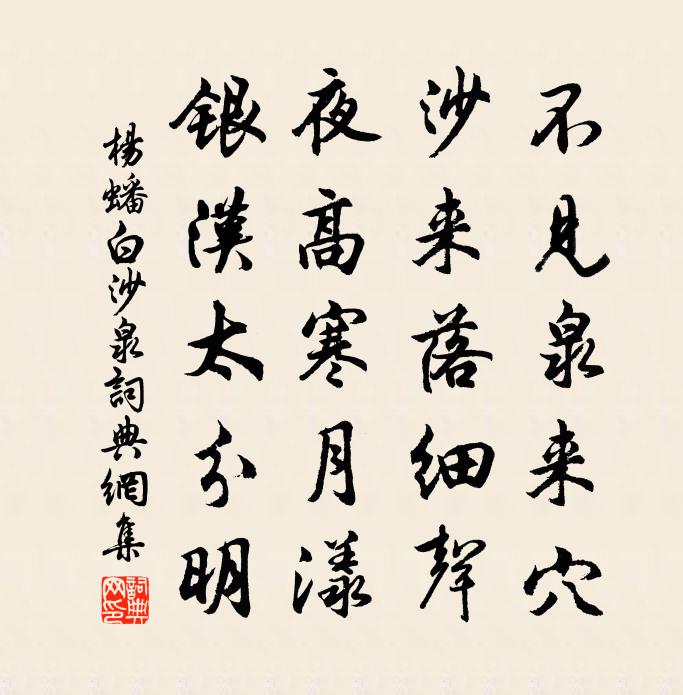 不見泉来穴
沙来落細聲
夜高寒月漾
銀漢太分明
楊蟠白沙泉詞典網集
詞典網印